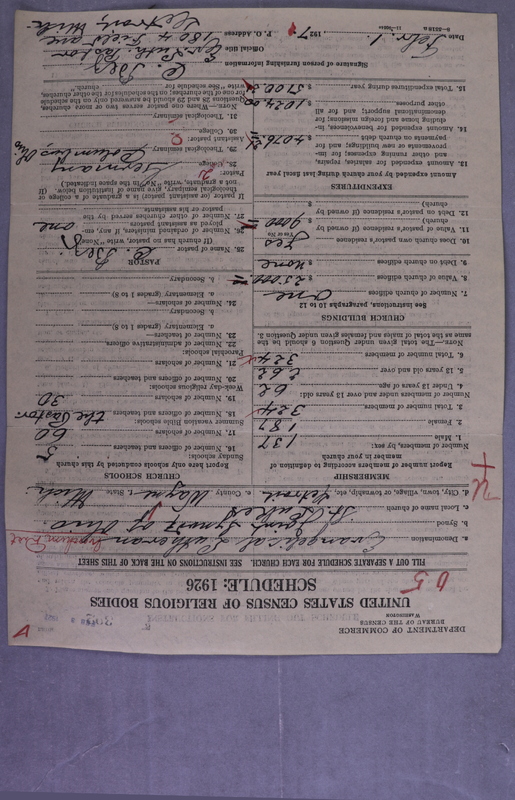 DEPARTMENT OF COMMERCE
BUREAU OF THE CENSUS
WASHINGTON
UNITED STATES CENSUS OF RELIGIOUS BODIES
SCHEDULE: 1926
FILL OUT A SEPARATE SCHEDULE FOR EACH CHURCH. SEE INSTRUCTIONS ON THE BACK OF THIS SHEET
a. Denomination Evangelical Lutheran
b. Synod Joint Synod of Ohio
c. Local name of church St. Lukes
d. City, town, village, or township, etc. Detroit e. County Wayne State Mich.
MEMBERSHIP
Report number of members according to definition of
member in your church
Number of members, by sex:
1. Male 137
2. Female 187
3. Total number of members 324
Number of members under and over 13 years old:
4. Under 13 years of age 62
5. 13 years old and over 262
6. Total number of members 324
NOTE.—The total given under Question 6 should be the
same as the total of males and females given under Question 3.
CHURCH BUILDINGS
See instructions, paragraphs 10 to 12
7. Number of church edifices one
8. Value of church edifices $ 25.000
9. Debt on church edifices $ none
10. Does church own pastor's residence Yes
Yes or No
11. Value of pastor's residence (if owned by
church) $ 9000
12. Debt on pastor's residence (if owned by
church) $
EXPENDITURES
Amount expended by your church during last fiscal year
13. Amount expended for salaries, repairs,
and other running expenses; for
payments on church debt $ 4076.21
14. Amount expended for benevolences, including
home and foreign missions; for
denominational support; and for all
other purposes $ 1024.00
15. Total expenditures during year $
CHURCH SCHOOLS
Report here only schools conducted by this church
Sunday schools:
16. Number of officers and teachers 5
17. Number of scholars 60
Summer vacation Bible schools:
18. Number of officers and teachers the Pastor
19. Number of scholars 30
Week-day religious schools:
20. Number of officers and teachers
21. Number of scholars
Parochial schools:
22. Number of administrative officers
23. Number of teachers—
a. Elementary (grades 1 to 8)
b. Secondary
24. Number of scholars—
a. Elementary (grades 1 to 8)
b. Secondary
PASTOR
25. Name of pastor
(If church has no pastor, write "None")
26. Number of ordained ministers, if any, employed
as assistants to pastor
27. Number of other churches served by the
pastor or his assistants one
If pastor (or assistant pastor) is a graduate of a college or
theological seminary, give name of institution below. (If
not a graduate, write "No" in the space indicated.)
Pastor:
28. College Germany
29. Theological seminary Columbus, Ohio
Assistant pastor:
30. College
31. Theological seminary
Signature of person furnishing information
Official title Ev. Luth. Pastor
P. O. Address
Detroit, Mich.
Date Febr. 1. 1927